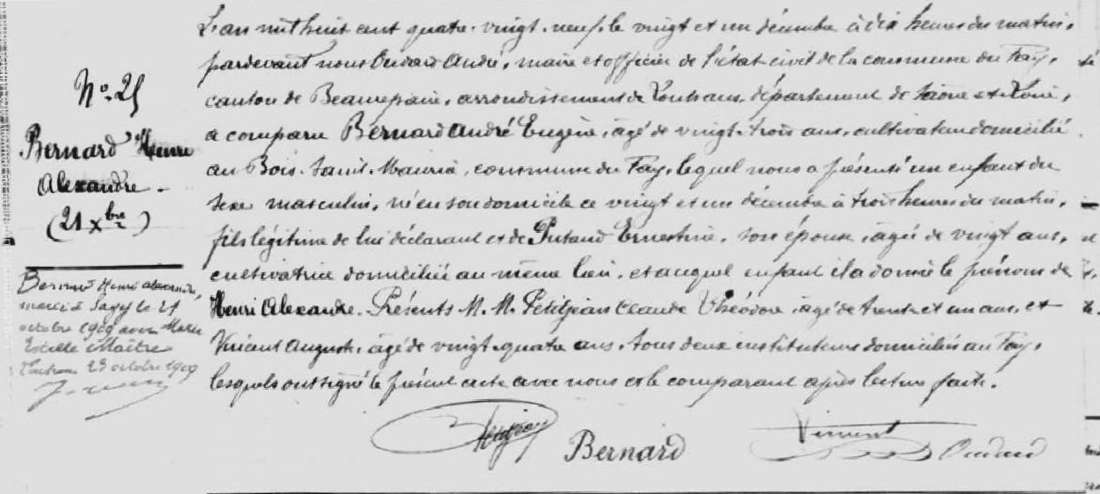 N°. 25
Bernard Henri
Alexandre.
(21 Xbre)
Bernard Henri Alexandre,
marié à Sagy le 21
octobre 1919 avec Marie
Estelle Maître
23 octobre 1919
L'an mil huit cent quatre-vingt-neuf, le vingt et un décembre à dix heures du matin,
pardevant nous Oudard André, maire et officier de l'état civil de la commune du Fay,
canton de Beaurepaire, arrondissement de Louhans, département de Saône et Loire,
a comparu Bernard André Eugène, âgé de vingt-trois ans, cultivateur domicilié
au Bois-Saint-Maurice, commune du Fay, lequel nous a présenté un enfant du
sexe masculin, né en son domicile ce vingt et un décembre à trois heures du matin,
fils légitime de lui déclarant et de Putaud Ernestine, son épouse, âgée de vingt ans,
cultivatrice domiciliée au même lieu, et auquel enfant il a donné le prénom de
Henri Alexandre. Présents M. M. Petitjean Claude Théodore, âgé de trente et un ans, et
Vincent Auguste, âgé de vingt-quatre ans, tous deux instituteurs domiciliés au Fay,
lesquels ont signé le présent acte avec nous et le comparant après lecture faite.
Petitjean
Bernard
Vincent
Oudard